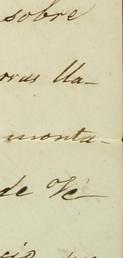 sobre
oras lla-
monta-
de Ve-